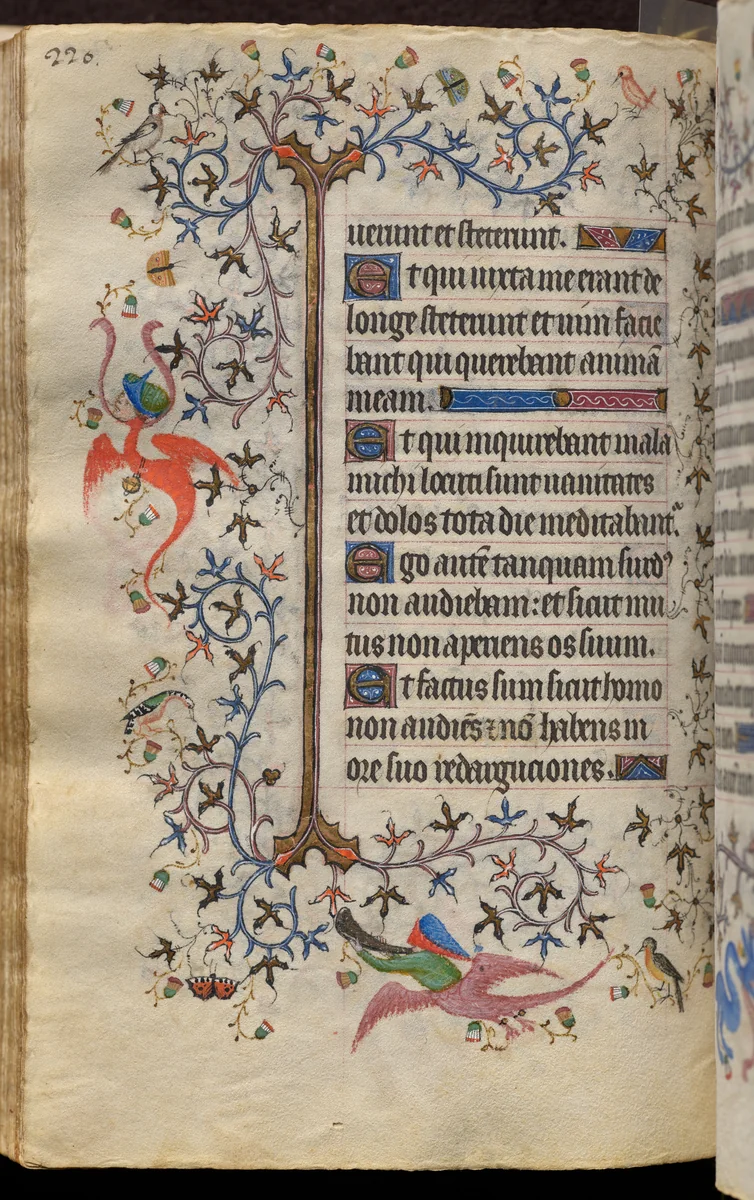 226.
uerunt et steterunt.
Et qui iuxta me erant de
longe steterunt et uim facie
bant qui querebant animā
meam.
Et qui inquirebant mala
michi locuti sunt uanitates
et dolos tota die meditabant᷑.
Ego autē tanquam surdꝰ
non audiebam: et sicut mu
tus non aperiens os suum.
Et factus sum sicut homo
non audiēs ⁊ nō habens in
ore suo redarguciones.